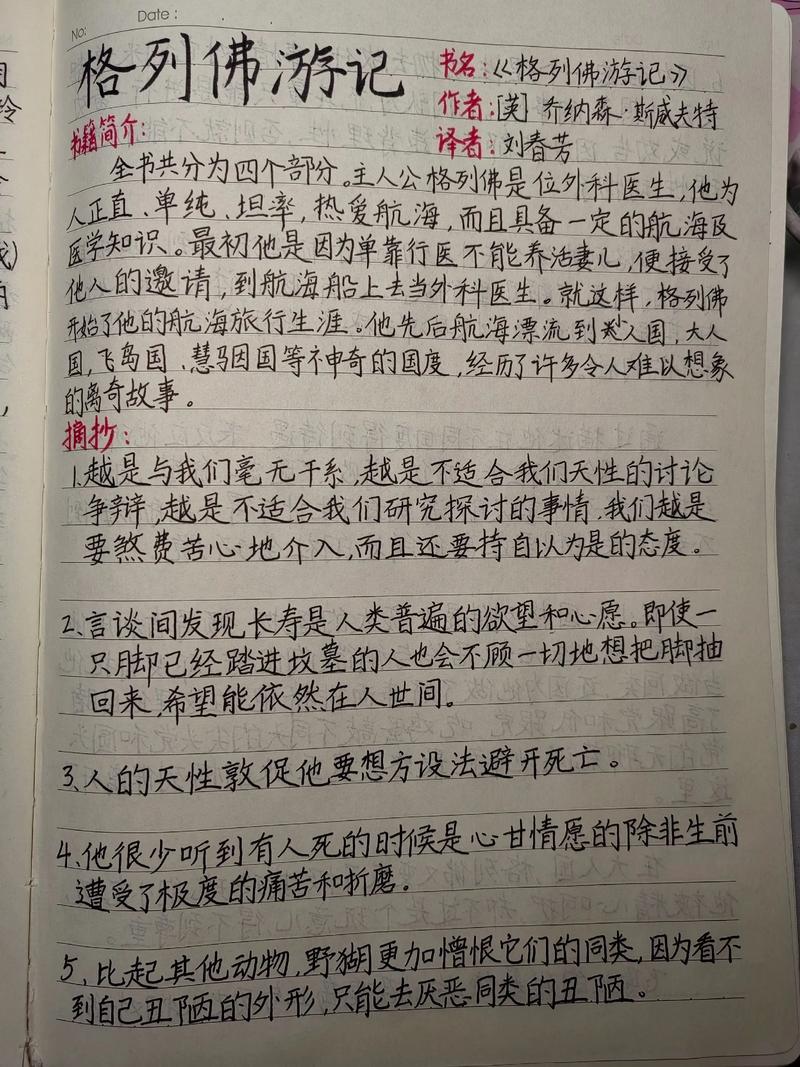 No:
Date:
格列佛游记
书名:《格列佛游记》
作者:[英] 乔纳森·斯威夫特
译者:刘春芳
书籍简介:
全书共分为四个部分。主人公格列佛是位外科医生,他为
人正直、单纯、坦率,热爱航海,而且具备一定的航海及
医学知识。最初他是因为单靠行医不能养活妻儿,便接受了
他人的邀请,到航海船上去当外科医生。就这样,格列佛
开始了他的航海旅行生涯。他先后航海漂流到小人国,大人
国,飞岛国、慧骃国等神奇的国度,经历了许多令人难以想象
的离奇故事。
摘抄:
1.越是与我们毫无干系,越是不适合我们天性的讨论
争辩,越是不适合我们研究探讨的事情,我们越是
要煞费苦心地介入,而且还要持自以为是的态度。
2、言谈间发现长寿是人类普遍的欲望和心愿。即使一
只脚已经踏进坟墓的人也会不顾一切地想把脚抽
回来,希望能依然在人世间。
3、人的天性敦促他要想方设法避开死亡。
4、他很少听到有人死的时候是心甘情愿的除非生前
遭受了极度的痛苦和折磨。
5、比起其他动物,野猢更加憎恨它们的同类,因为看不
到自己丑陋的外形,只能去厌恶同类的丑陋。